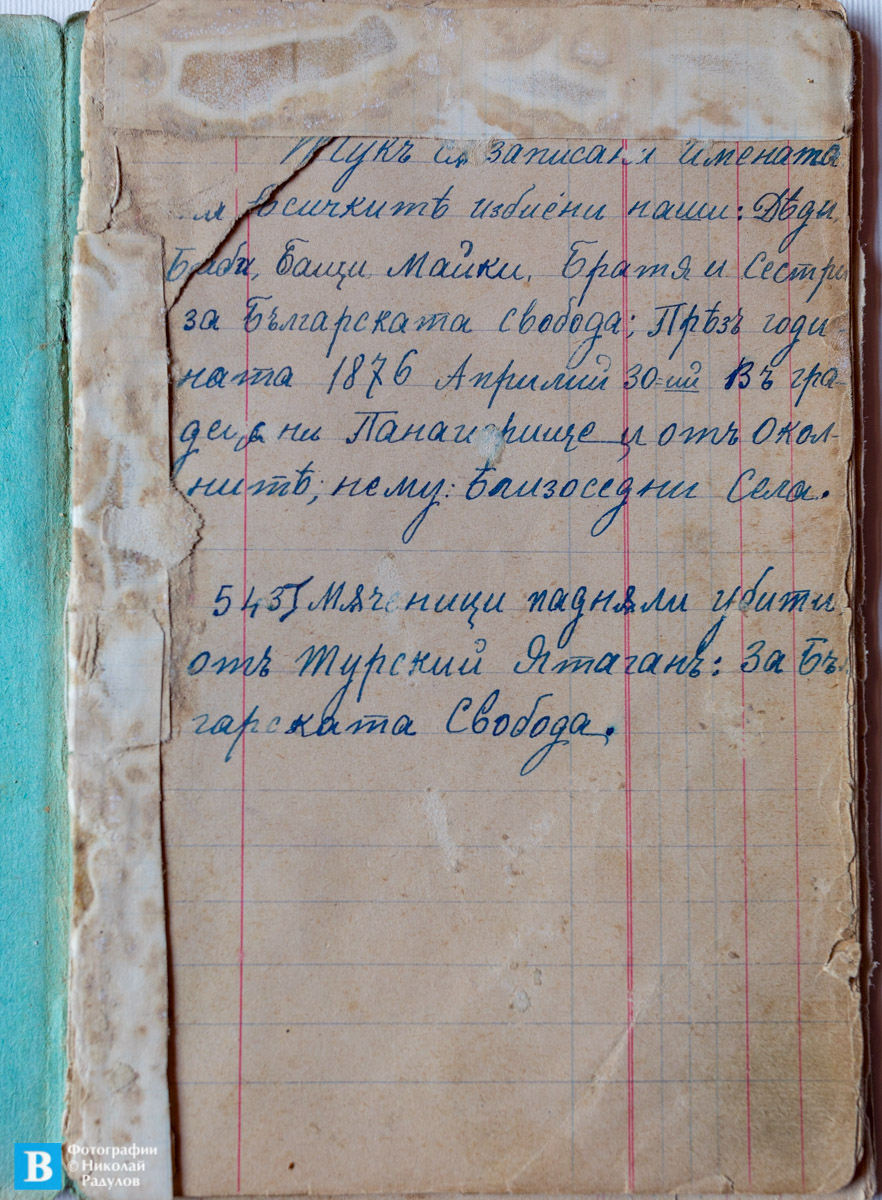 Тукъ са записани имената
на всичкитѣ избиени наши: Дѣди,
Баби, Бащи Майки, Братя и Сестри
за Българската свобода; Прѣзъ годи-
ната 1876 Априлий 30-ий Въ гра-
Панагюрище и отъ Окол-
нитѣ; нему: Близоседни Села.
543 Мяченици падняли убити
отъ Турский Ятаганъ: За Бъл
гарската Свобода.
В
Фотографии
© Николай
Радулов